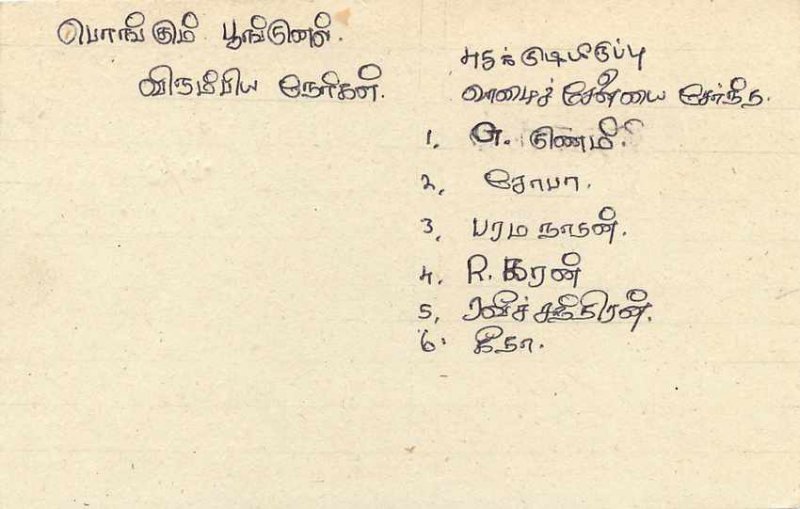 பொங்கும் பூங்குனல்.
விரும்பிய நேர்கள்.
புதுக்குடியிருப்பு
வாழைச் சேனையை சேர்ந்த.
1. G. குணம்.
2. சோபா.
3. பரமநாதன்.
4. R. கரன்
5. ரவிச்சந்திரன்.
6. கீதா.